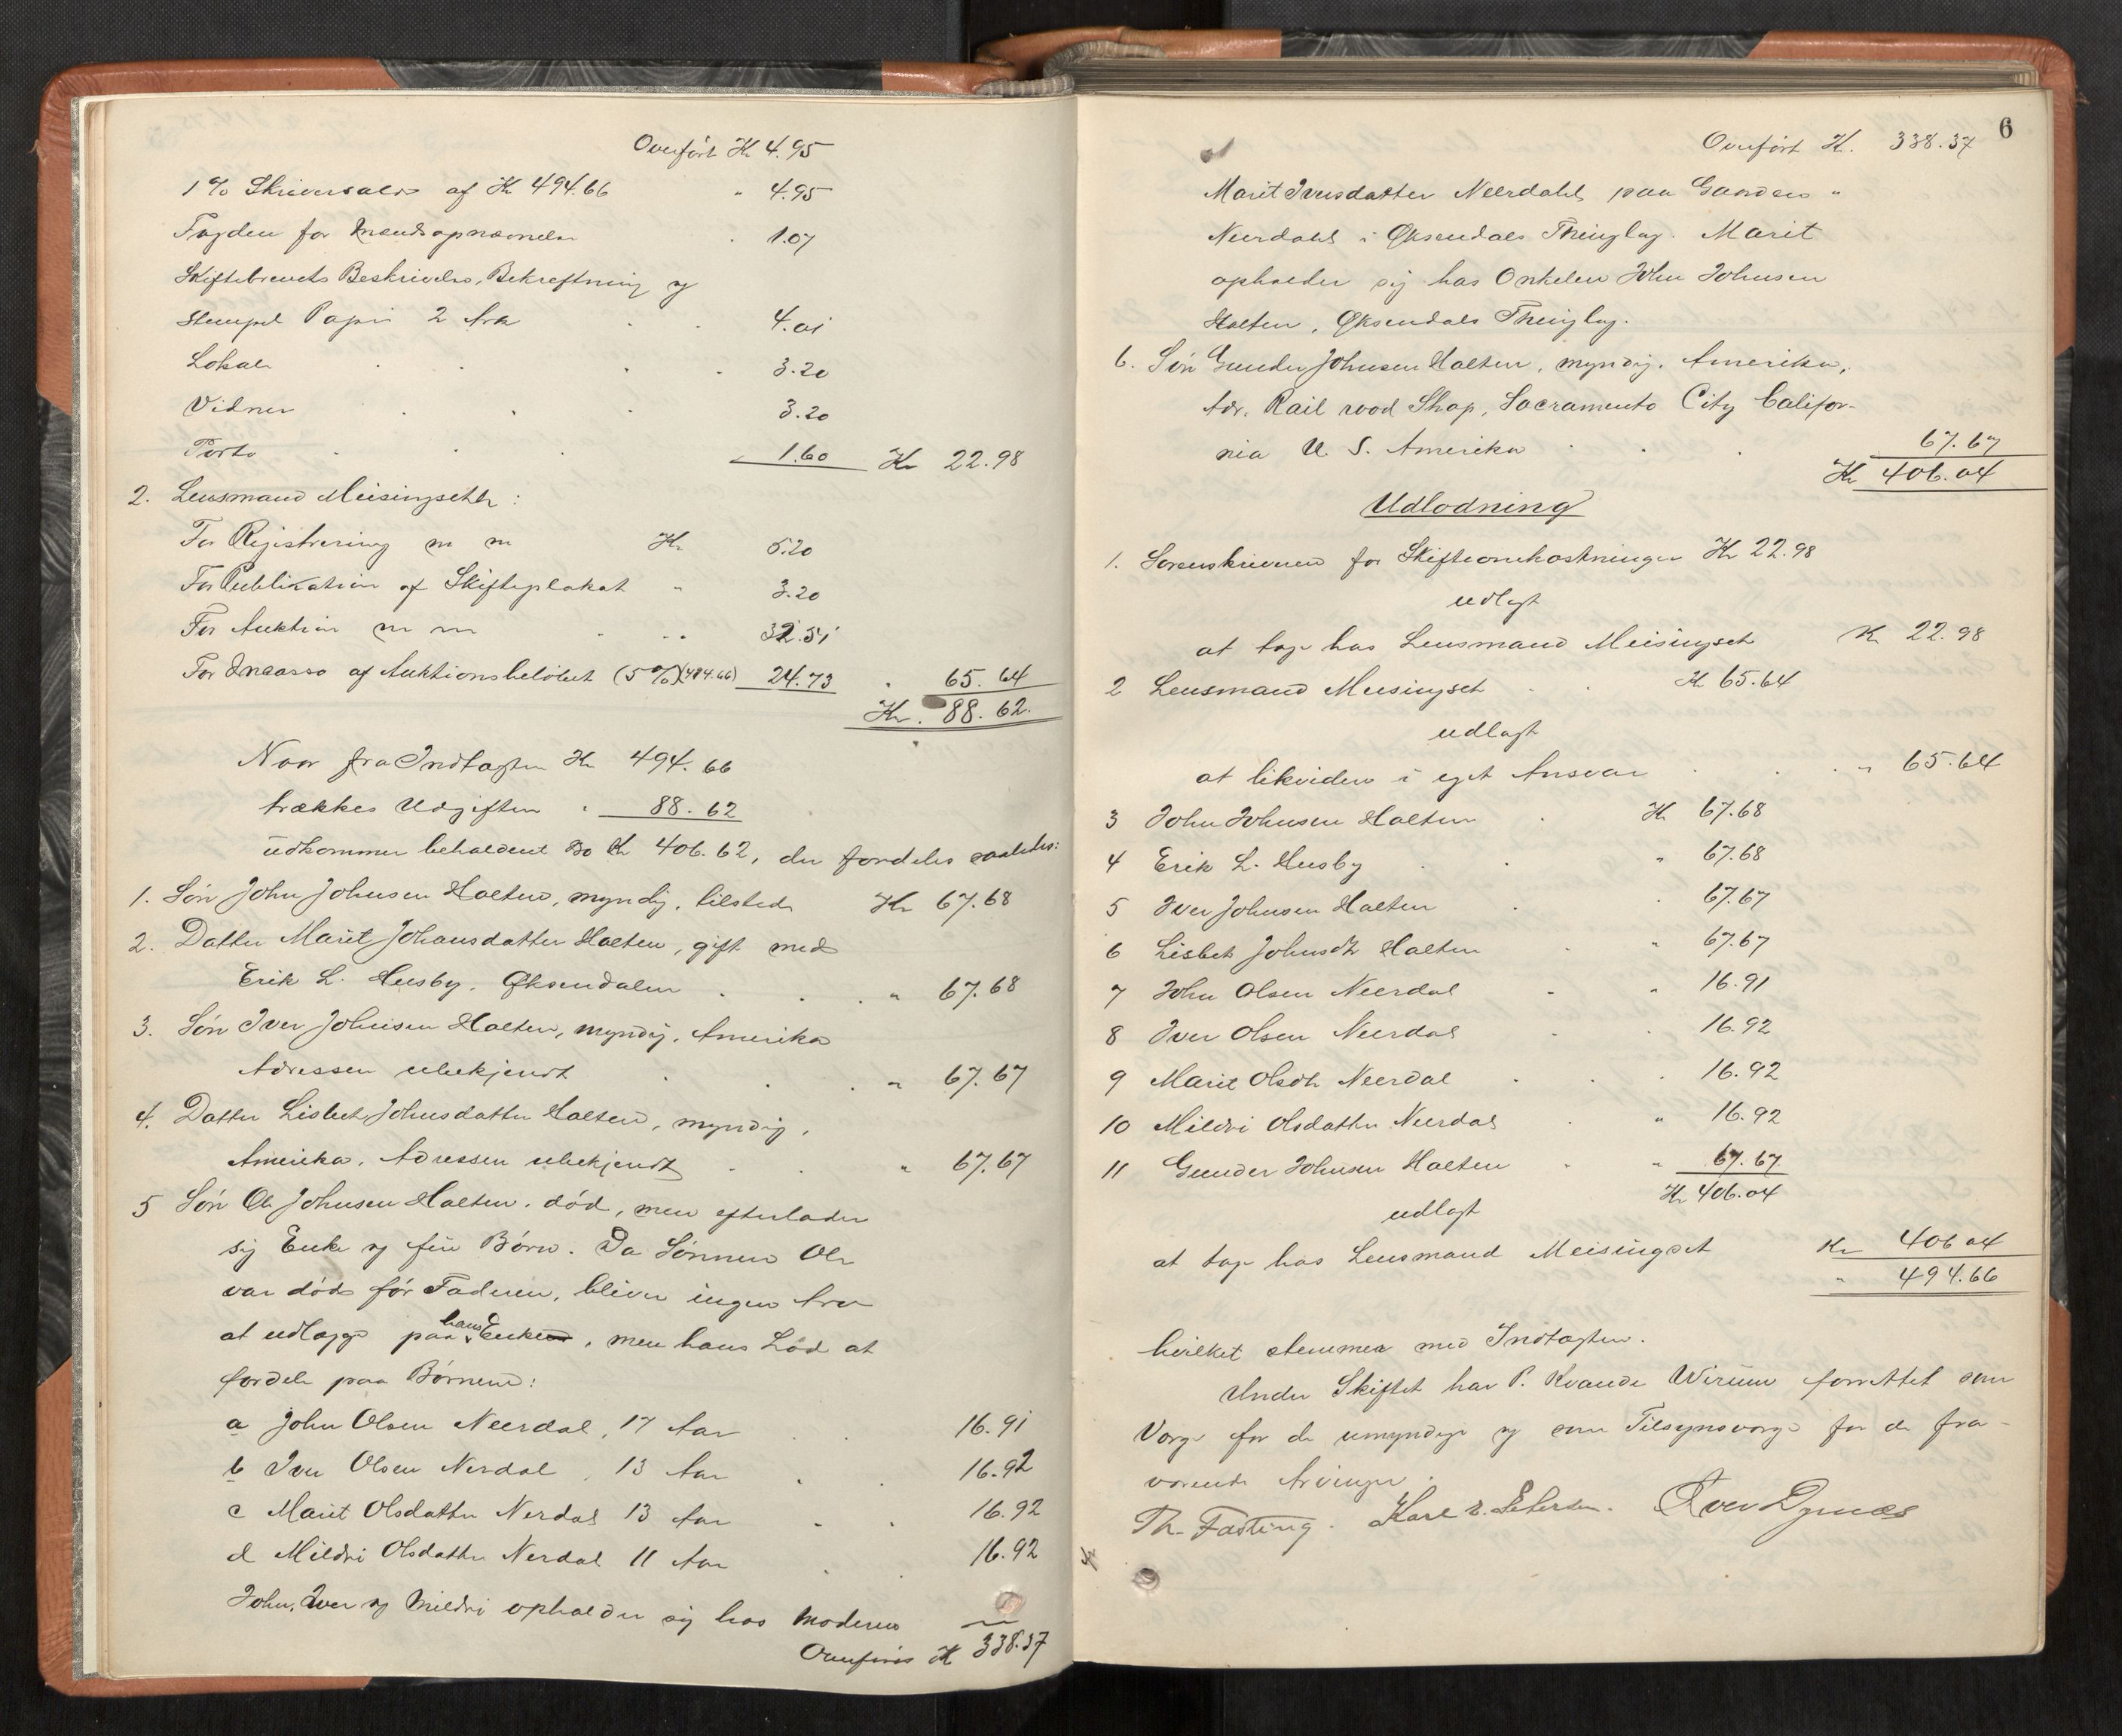 Overført Kr 4.95
1 % Skriversalær af Kr 494.66 " 4.95
Fogden for Mændsopnævnelse . 1.07
Skiftebrevets Beskrivelse, Bekræftning og
stempel Papir 2 Ark . . 4.01
Lokale . . . 3.20
Vidner . . . 3.20
Porto . . . 1.60 Kr 22.98
2. Lensmand Meisingseth:
For Registrering m m Kr 5.20
For Publikation af Skifteplakat " 3.20
For Auktion m m . .. 32.51
For Incasso af Auktionsbeløbet (5 %)(494.66) 24.73 " 65.64
Kr. 88.62.
Naar fra Indtægten Kr 494.66
trækkes Udgiften " 88.62
udkommer beholdent Bo Kr 406.62, der fordeles saaledes:
1. Søn John Johnsen Halten, myndig, tilstede Kr 67.68
2. Datter Marit Johansdatter Halten, gift med
Erik L. Husby, Øksendalen . . . " 67.68
3. Søn Iver Johnsen Halten, myndig, Amerika
Adressen ubekjendt . . . " 67.67
4. Datter Lisbet Johnsdatter Halten, myndig,
Amerika, Adressen ubekjendt . . " 67.67
5 Søn Ole Johnsen Halten, død, men efterlader
sig Enke og fire Børn. Da Sønnen Ole
var død før Faderen, bliver ingen Arv
at udlægge paa hans Enke, men hans Lod at
fordele paa Børnene:
a John Olsen Neerdal, 17 Aar . . 16.91
b Iver Olsen Nerdal, 13 Aar . . 16.92
c Marit Olsdatter Nerdal 13 Aar . . 16.92
d Mildri Olsdatter Nerdal 11 Aar . . 16.92
John, Iver og Mildri opholder sig hos Moderen
Overføres Kr 338.37
6
Overført Kr. 338.37
Marit Iversdatter Neerdahl paa Gaarden "
Neerdahl i Øksendals Thinglag. Marit
opholder sig hos Onkelen John Johnsen
Halten, Øksendals Thinglag.
6. Søn Gunder Johnsen Halten, myndig. Amerika,
Adr. Rail rood Shop, Sacramento City Califor-
nia U. S. Amerika . . . 67.67
Kr 406.04
Udlodning
1. Sorenskriveren for Skifteomkostninger Kr 22.98
udlagt
at tage hos Lensmand Meisingset Kr 22.98
2 Lensmand Meisingset . . Kr 65.64
udlagt
at likvidere i eget Ansvar . . . " 65.64
3 John Johnsen Halten . Kr 67.68
4 Erik L. Husby . . " 67.68
5 Iver Johnsen Halten . . 67.67
6 Lisbet Johnsdtr Halten . " 67.67
7 John Olsen Neerdal . " 16.91
8 Iver Olsen Neerdal . . 16.92
9 Marit Olsdtr Neerdal . . . 16.92
10 Mildri Olsdatter Neerdal . " 16.92
11 Gunder Johnsen Halten . " 67.67
Kr 406.04
udlagt
at tage hos Lensmand Meisingset Kr 406 04
" 494.66
hvilket stemmer med Indtægten.
Under Skiftet har P. Kvande Wirum forrettet som
Værge for de umyndige og som Tilsynsværge for de fra-
værende Arvinger.
Th. Fasting. Karl E. Petersen. Iver Dyrnæs